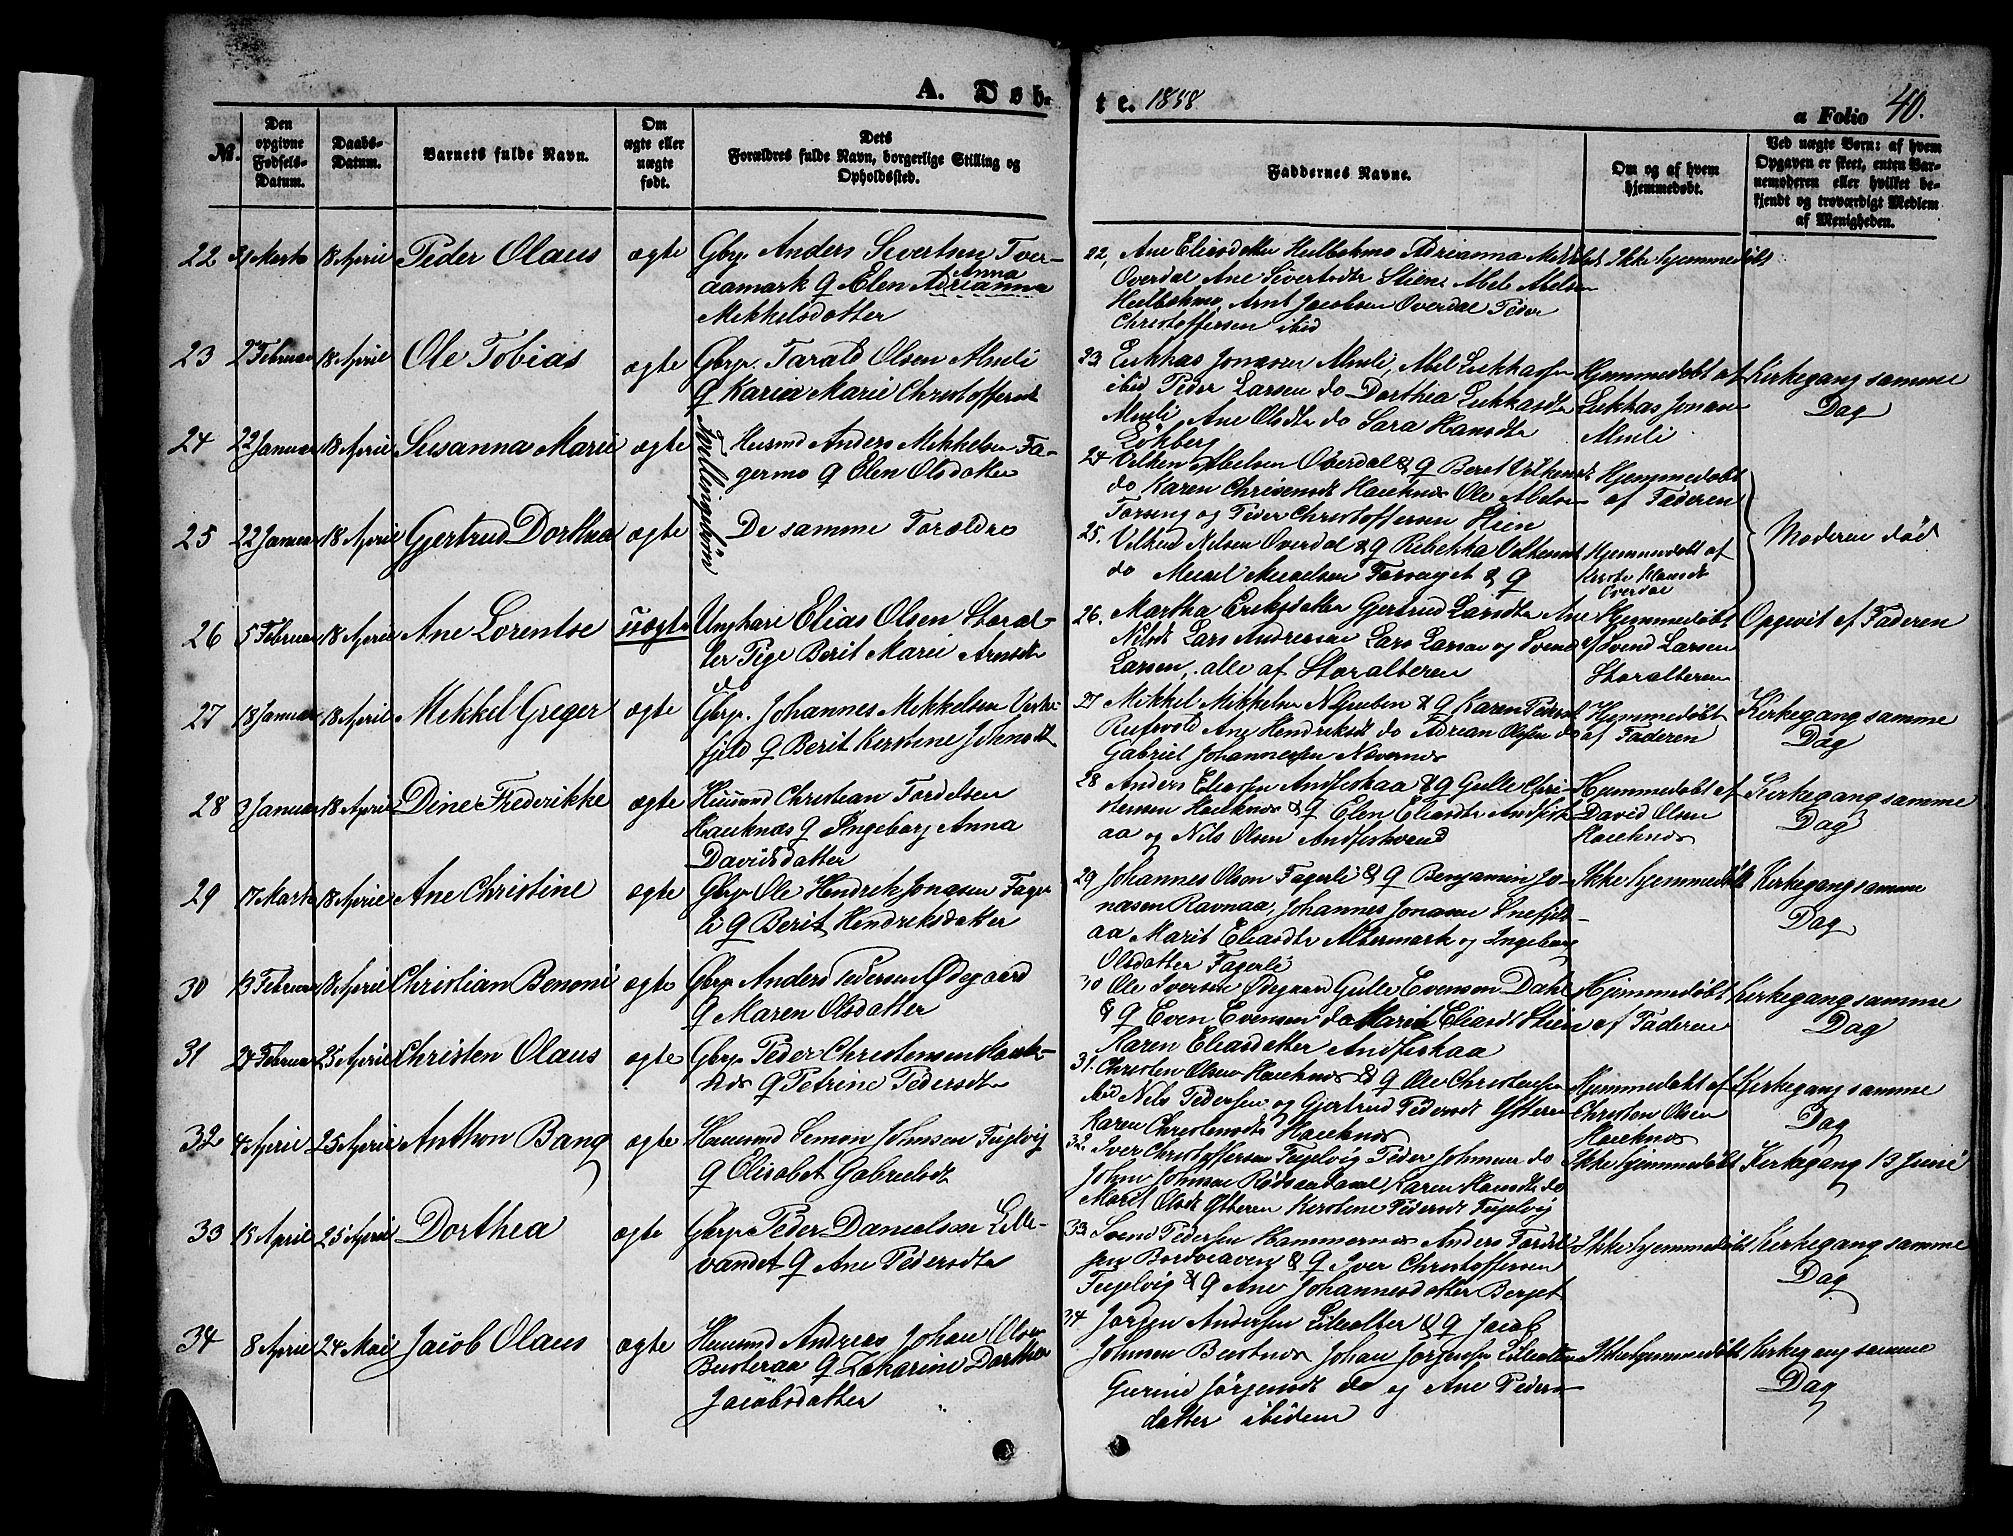 A. Døb-
te. 1858
a Folio 40.
№.
Den opgivne Fødsels-Datum.
Daabs-Datum.
Barnets fulde Navn.
Om ægte eller uægte født.
Dets
Forældres fulde Navn, borgerlige Stilling og
Opholdssted.
Faddernes Navne.
Om og af hvem
hjemmedøbt.
Ved uægte Børn: af hvem
Opgaven er skeet, enten Bar-
nemoderen eller hvilket be-
kjendt og troværdigt Medlem
af Menigheden.
22 31 Marts 18 April Peder Olaus ægte Gbrp Anders Sivertsen Tver-
aamark & Elen Anna
Mikkelsdatter
22, Ane Eliasdatter
Overdal Ane Sivertsdtr Stien Abel Abelsen
Arnt Jacobsen Overdal Peder
Christoffersen ibid
Ikke hjemmedøbt
23 2 Februar 18 April Ole Tobias ægte Gbrp. Tarald Olsen Almli
& Karen Marie Christoffersdt
23 Lukkas Jonasen Almli, Abel Lukkassen
ibid Peder Larsen do Dorthea Lukkasdtr
Almli Ane Olsdtr do Sara Hansdtr
Løkberg
Hjemmedøbt af
Lukkas Jonasen
Almli
Kirkegang samme
Dag
24 22 Januar 18 April Susanna Marie ægte Husmd Anders Mikkelsen Fa-
germo & Elen Olsdatter
Tvillingebørn
24 Velken Abelsen Overdal & Q Beret
do Karen Hauknes Ole Abelsen
Forseng og Peder Christoffersen Stien
Hjemmedøbt
af Faderen
25 22 Januar 18 April Gjertrud Dorthea ægte De samme Forældre
25. Nilsen Overdal & Q Rebekka
do
Hjemmedøbt af
Hansdt
Overdal
Moderen død
26 5 Februar 18 April Ane Lorentse uægte Ungkarl Elias Olsen Storal-
ter Pige Berit Marie Arnsdtr
do
26. Martha Eriksdatter Gjertrud Larsdtr Ane
Nilsdt Lars Andreasen Lars Larsen og Svend
Larsen, alle af Storalteren
Hjemmedøbt
af Svend Larsen
Storalteren
Opgivit af Faderen
27 18 Januar 18 April Mikkel Greger ægte Gbrp. Johannes Mikkelsen Virve-
fjeld & Berit Kirstine Johnsdt
27 Mikkel Mikkelsen & Q Karen Pedersdt
Ane Hendriksdt do Adrian Olsen do
Gabriel Johannessen Nævernes
Hjemmedøbt
af Faderen
Kirkegang samme
Dag
28 3 Januar 18 April Dine Frederikke ægte Husmd Christian Fordelsen
Hauknes & Ingeborg Anna
Davidsdatter
28 Anders Eliassen Andfiskaa & Q Gulle Chri-
stensen Hauknes & Q Elen Eliasdtr Andfisk
aa og Nils Olsen Andfiskvand
Hjemmedøbt af
David Olsen
Hauknes
Kirkegang samme
Dag
29 17 Marts 18 April Ane Christine ægte Gbrp Ole Hendrik Jonasen Fager
li & Berit Hendriksdatter
29 Johannes Olsen Fagerli & Q Benjamin Jo-
nasen Ravnaa, Johannes Jonasen Snefjeld-
aa Marit Eliasdtr Altermark og Ingeborg
Olsdatter Fagerli
Ikke hjemmedøbt
Kirkegang samme
Dag
30 13 Februar 18 April Christian Benoni ægte Gbrp Anders Pedersen Ødegaard
& Maren Olsdatter
30 Ole Iversen Ødegaard Gulle Evensen Dahl
& Q Even Evensen do Marit Eliasdt Stien
Karen Eliasdatter Andfiskaa
Hjemmedøbt
af Faderen
Kirkegang samme
Dag
31 24 Februar 25 April Christen Olaus ægte Gbrp Peder Christensen Hauk-
nes & Petrine Pedersdtr
31. Christen Olsen Hauknes & Q Ole Christensen
ibid Nils Pedersen og Gjertrud Pedersdt Ytteren
Karen Christensdt Hauknes
Hjemmedøbt af
Christen Olsen
Hauknes
Kirkegang samme
Dag
32 4 April 25 April Anthon Bang ægte Husmd Simon Johnsen Fuglvig
& Elisabet Gabrielsdt
32. Iver Christoffersen Fuglvig Peder Johnsen do
John Johnsen Karen Hansdtr do
Maret Olsdt Ytteren Kirstine Pedersdt Fuglvig
Ikke hjemmedøbt
Kirkegang 13 Juni
33 18 April 25 April Dorthea ægte Gbrp Peder Danielsen Lille-
vandet & Ane Pedersdtr
33 Svend Pedersen Hammernes Anders Fordel
sen & Q Iver Christoffersen
Fuglvig & Q Ane Johannesdatter Berget
Ikke hjemmedøbt
Kirkegang samme
Dag
34 8 April 24 Mai Jacob Olaus ægte Husmd Andreas Johan Olsen
Busteraa & Zakarine Dorthea
Jacobsdatter
34 Jørgen Andersen Lillealter & Q Jacob
Johnsen Bustnes Johan Jørgensen Lillealteren
Gurine Jørgensdt do og Ane Peders-
datter ibidem
Ikke hjemmedøbt
Kirkegang samme
Dag